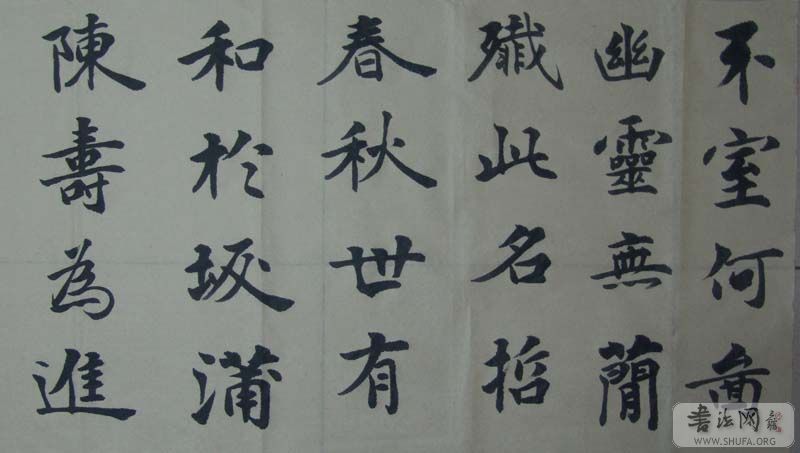 不室何
幽靈無簡
殲此名哲
春秋世有
和於坂蒲
陳壽為進
書法网
WWW.SHUFA.ORG